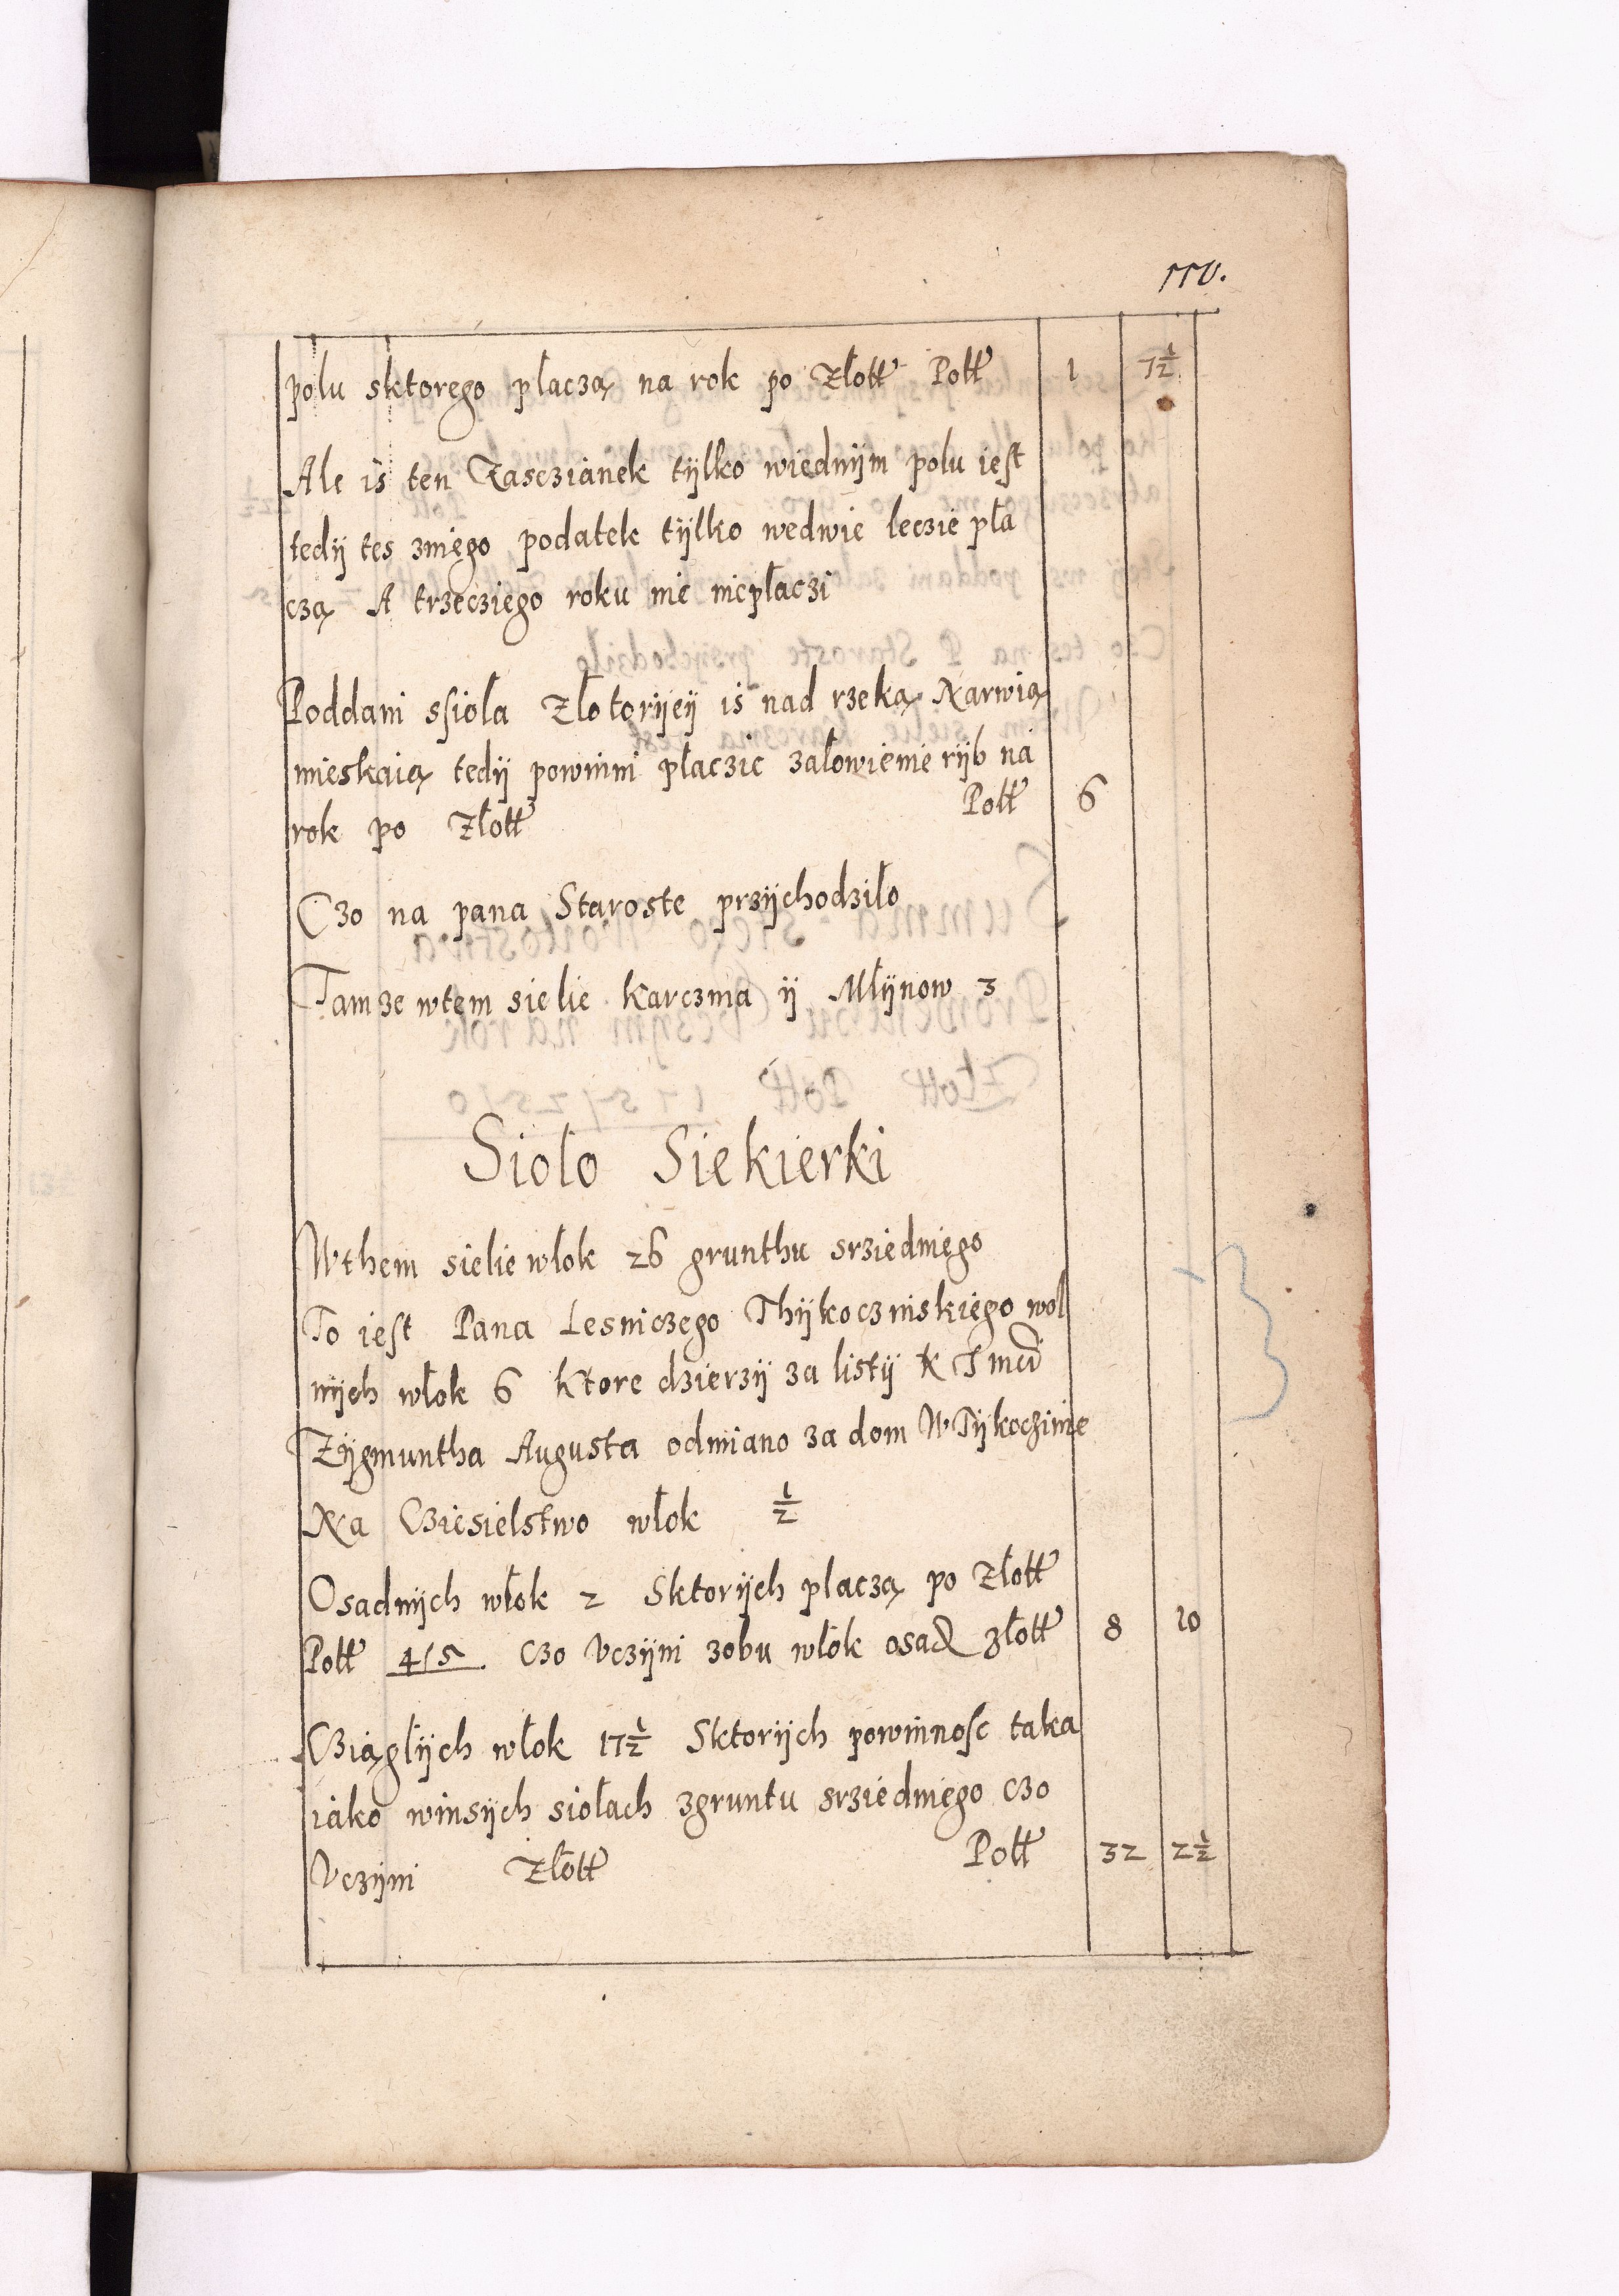 110.
polu sktorego płaczą na rok po Złott Poll 1 7½
Ale is ten Zasczianek tÿlko wiednÿm polu iest
tedÿ tes zniego podatek tÿlko wedwie leczie pła
czą A trzecziego roku nic niepłaczi
Poddani ssioła Złotorÿeÿ is nad rzeką Narwią
mieskaią tedÿ powinni płaczic załowienie rÿb na
rok po Złott Poll 6
Czo na pana Staroste przÿchodziło
Tamze wtem sielie Karczma ÿ Młÿnow 3
Sioło Siekierki
Wthem sielie włok 26 grunthu srziedniego
To iest Pana Lesniczego Thÿkoczinskiego wol
nÿch włok 6 Ktore dzierzÿ za listÿ K J mci
Zÿgmuntha Augusta odmiano za dom W Tÿkoczinie
Na Cziesielstwo włok ½
Osadnÿch włok 2 Sktorÿch płaczą po Złott
Poll 4/5 Czo Vczÿni zobu włok osad złott 8 10
Cziągłÿch włok 17½ Sktorÿch powinnosc taka
iako winsÿch siołach zgruntu srziedniego Czo
Vczÿni Złott Poll 32 2½